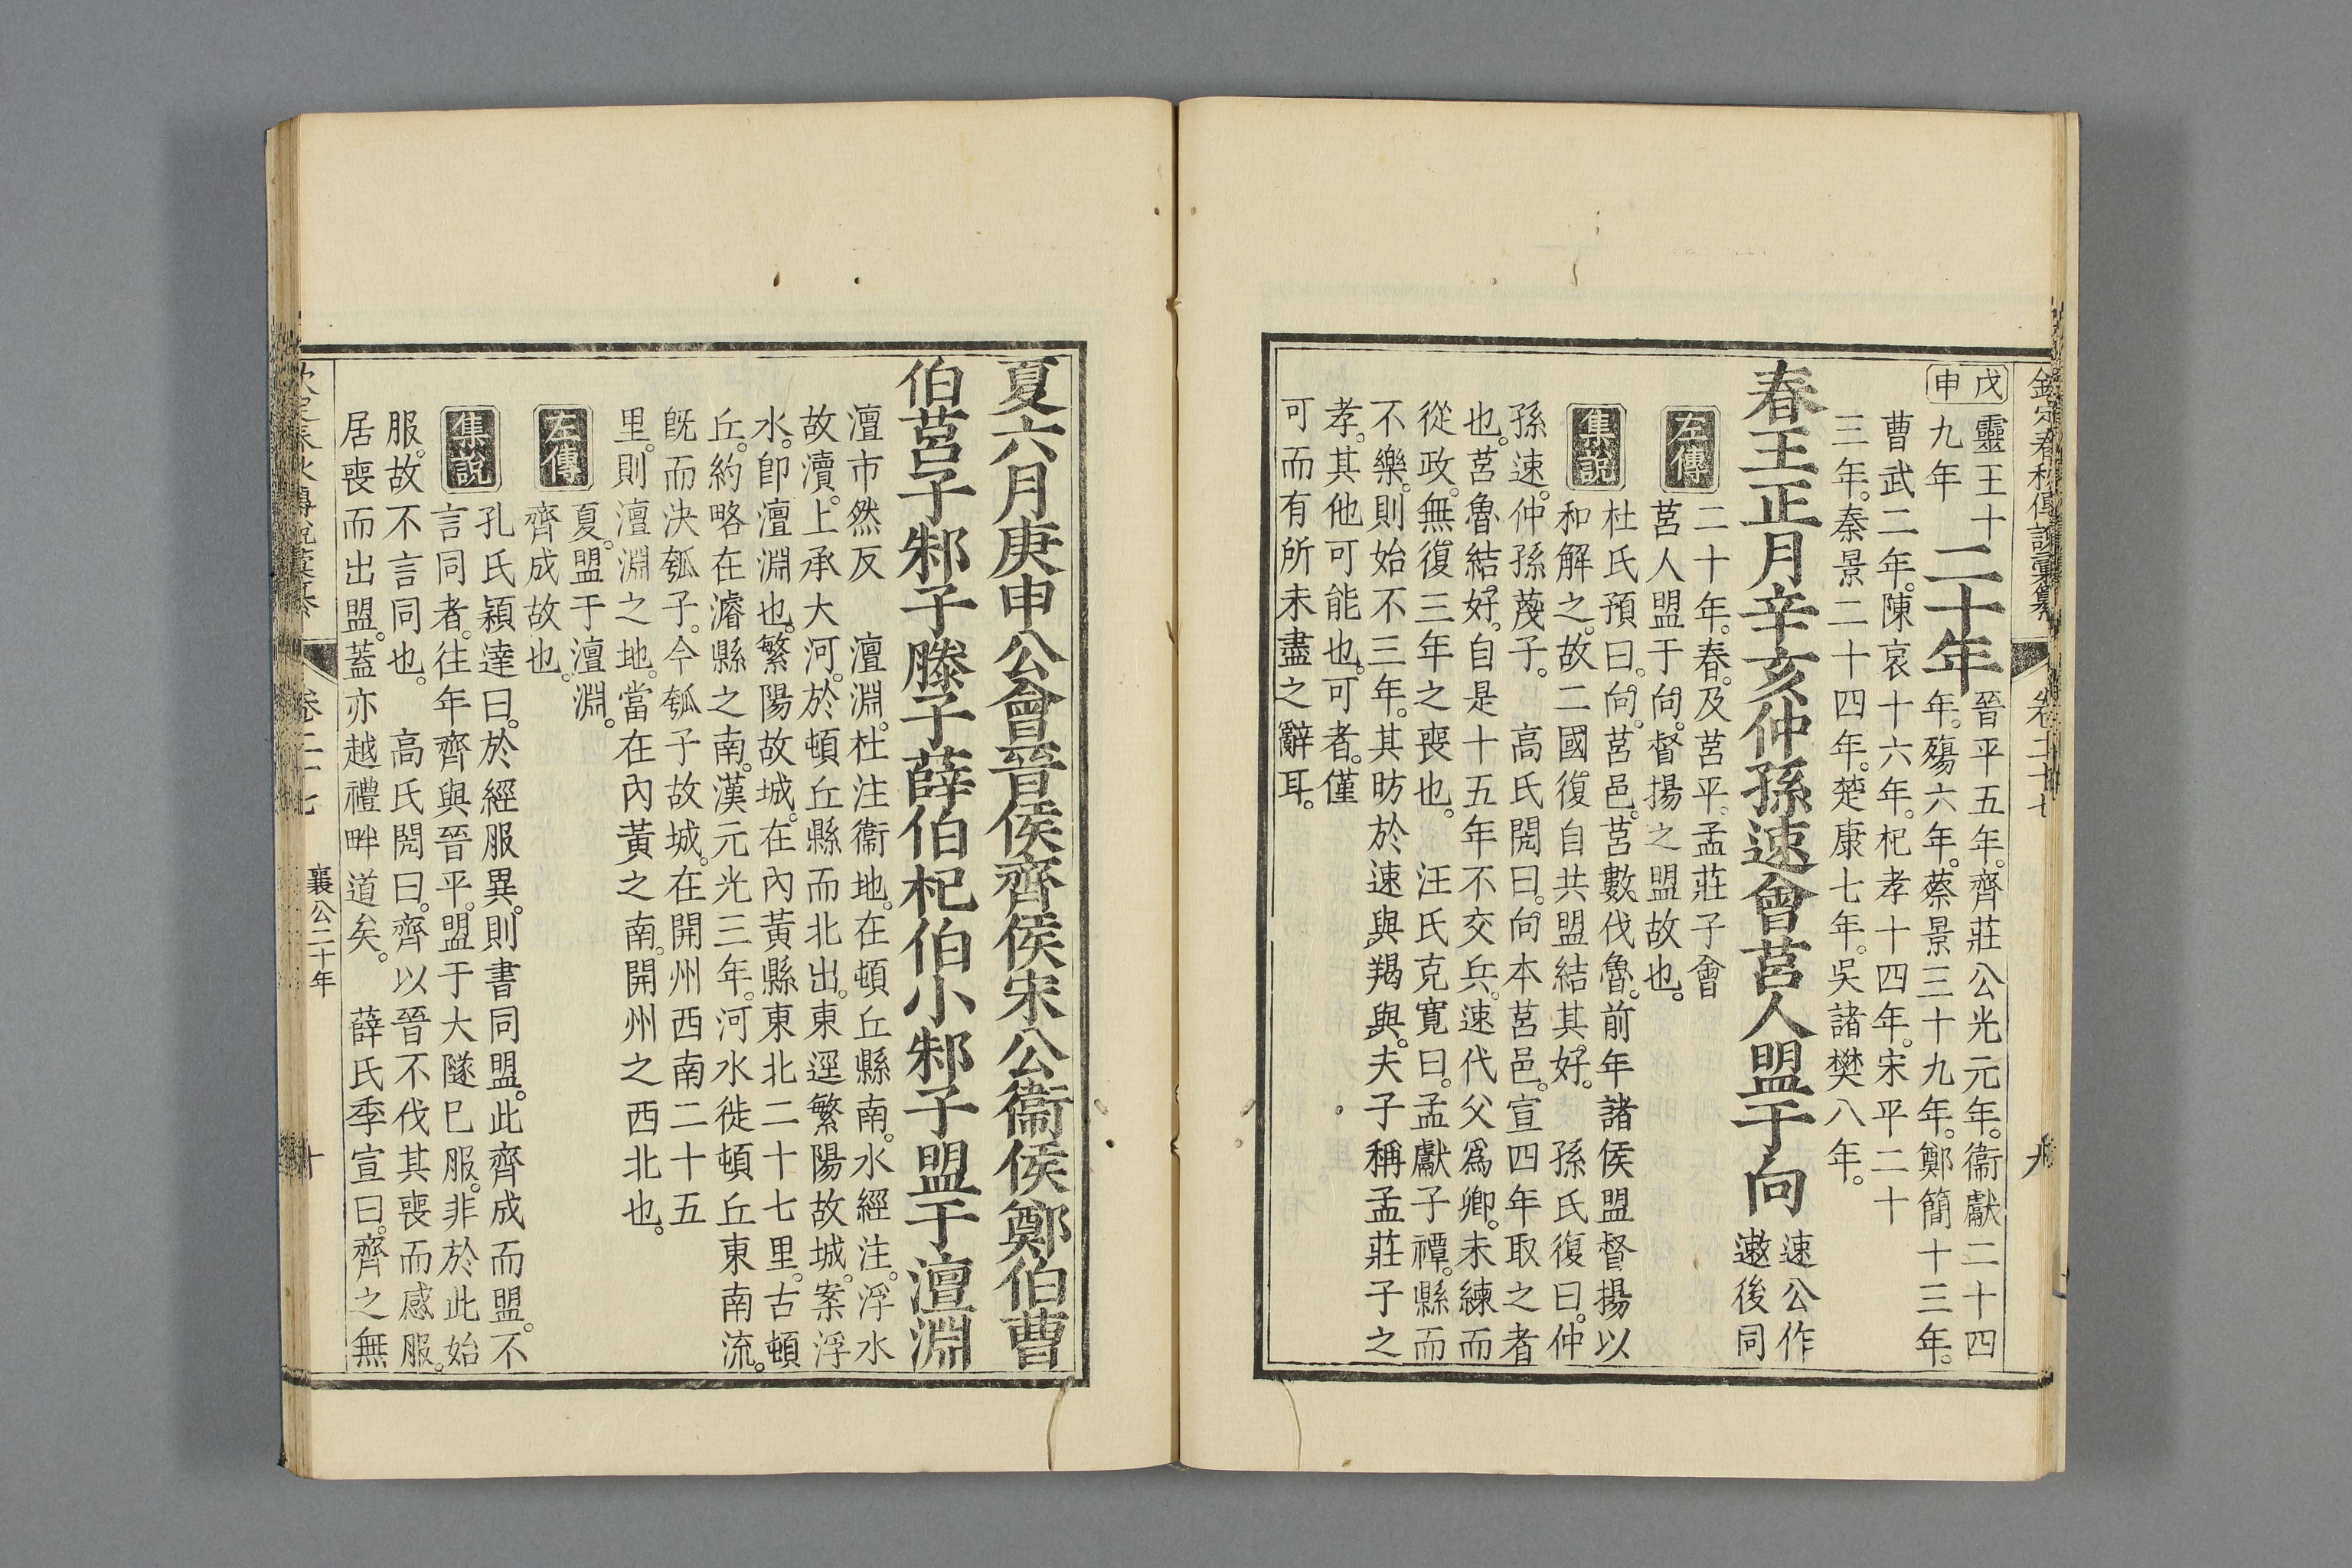 欽定春秋傳說彙纂 卷二十七 九
戊申 靈王十九年 二十年 晉平五年。齊莊公光元年。衞獻二十四年。殤六年。蔡景三十九年。鄭簡十三年。
曹武二年。陳哀十六年。杞孝十四年。宋平二十
三年。秦景二十四年。楚康七年。吳諸樊八年。
春王正月辛亥仲孫速會莒人盟于向 速公作遬後同
左傳 二十年。春。及莒平。孟莊子會
莒人盟于向。督揚之盟故也。
集說 杜氏預曰。向。莒邑。莒數伐魯。前年諸侯盟督揚以
和解之。故二國復自共盟結其好。 孫氏復曰。仲
孫速。仲孫蔑子。 高氏閌曰。向本莒邑。宣四年取之者
也。莒魯結好。自是十五年不交兵。速代父爲卿。未練而
從政。無復三年之喪也。 汪氏克寬曰。孟獻子禫。縣而
不樂。則始不三年。其昉於速與。羯與。夫子稱孟莊子之
孝。其他可能也。可者。僅
可而有所未盡之辭耳。
夏六月庚申公會晉侯齊侯宋公衞侯鄭伯曹
伯莒子邾子滕子薛伯杞伯小邾子盟于澶淵
澶市然反 澶淵。杜注衞地。在頓丘縣南。水經注。浮水
故瀆。上承大河。於頓丘縣而北出。東逕繁陽故城。案浮
水。卽澶淵也。繁陽故城。在內黃縣東北二十七里。古頓
丘。約略在濬縣之南。漢元光三年。河水徙頓丘東南流。
旣而決瓠子。今瓠子故城。在開州西南二十五
里。則澶淵之地。當在內黃之南。開州之西北也。
左傳 夏。盟于澶淵。
齊成故也。
集說 孔氏穎達曰。於經服異。則書同盟。此齊成而盟。不
言同者。往年齊與晉平。盟于大隧已服。非於此始
服。故不言同也。 高氏閌曰。齊以晉不伐其喪而感服。
居喪而出盟。蓋亦越禮畔道矣。 薛氏季宣曰。齊之無
卷二十七 襄公二十年 十